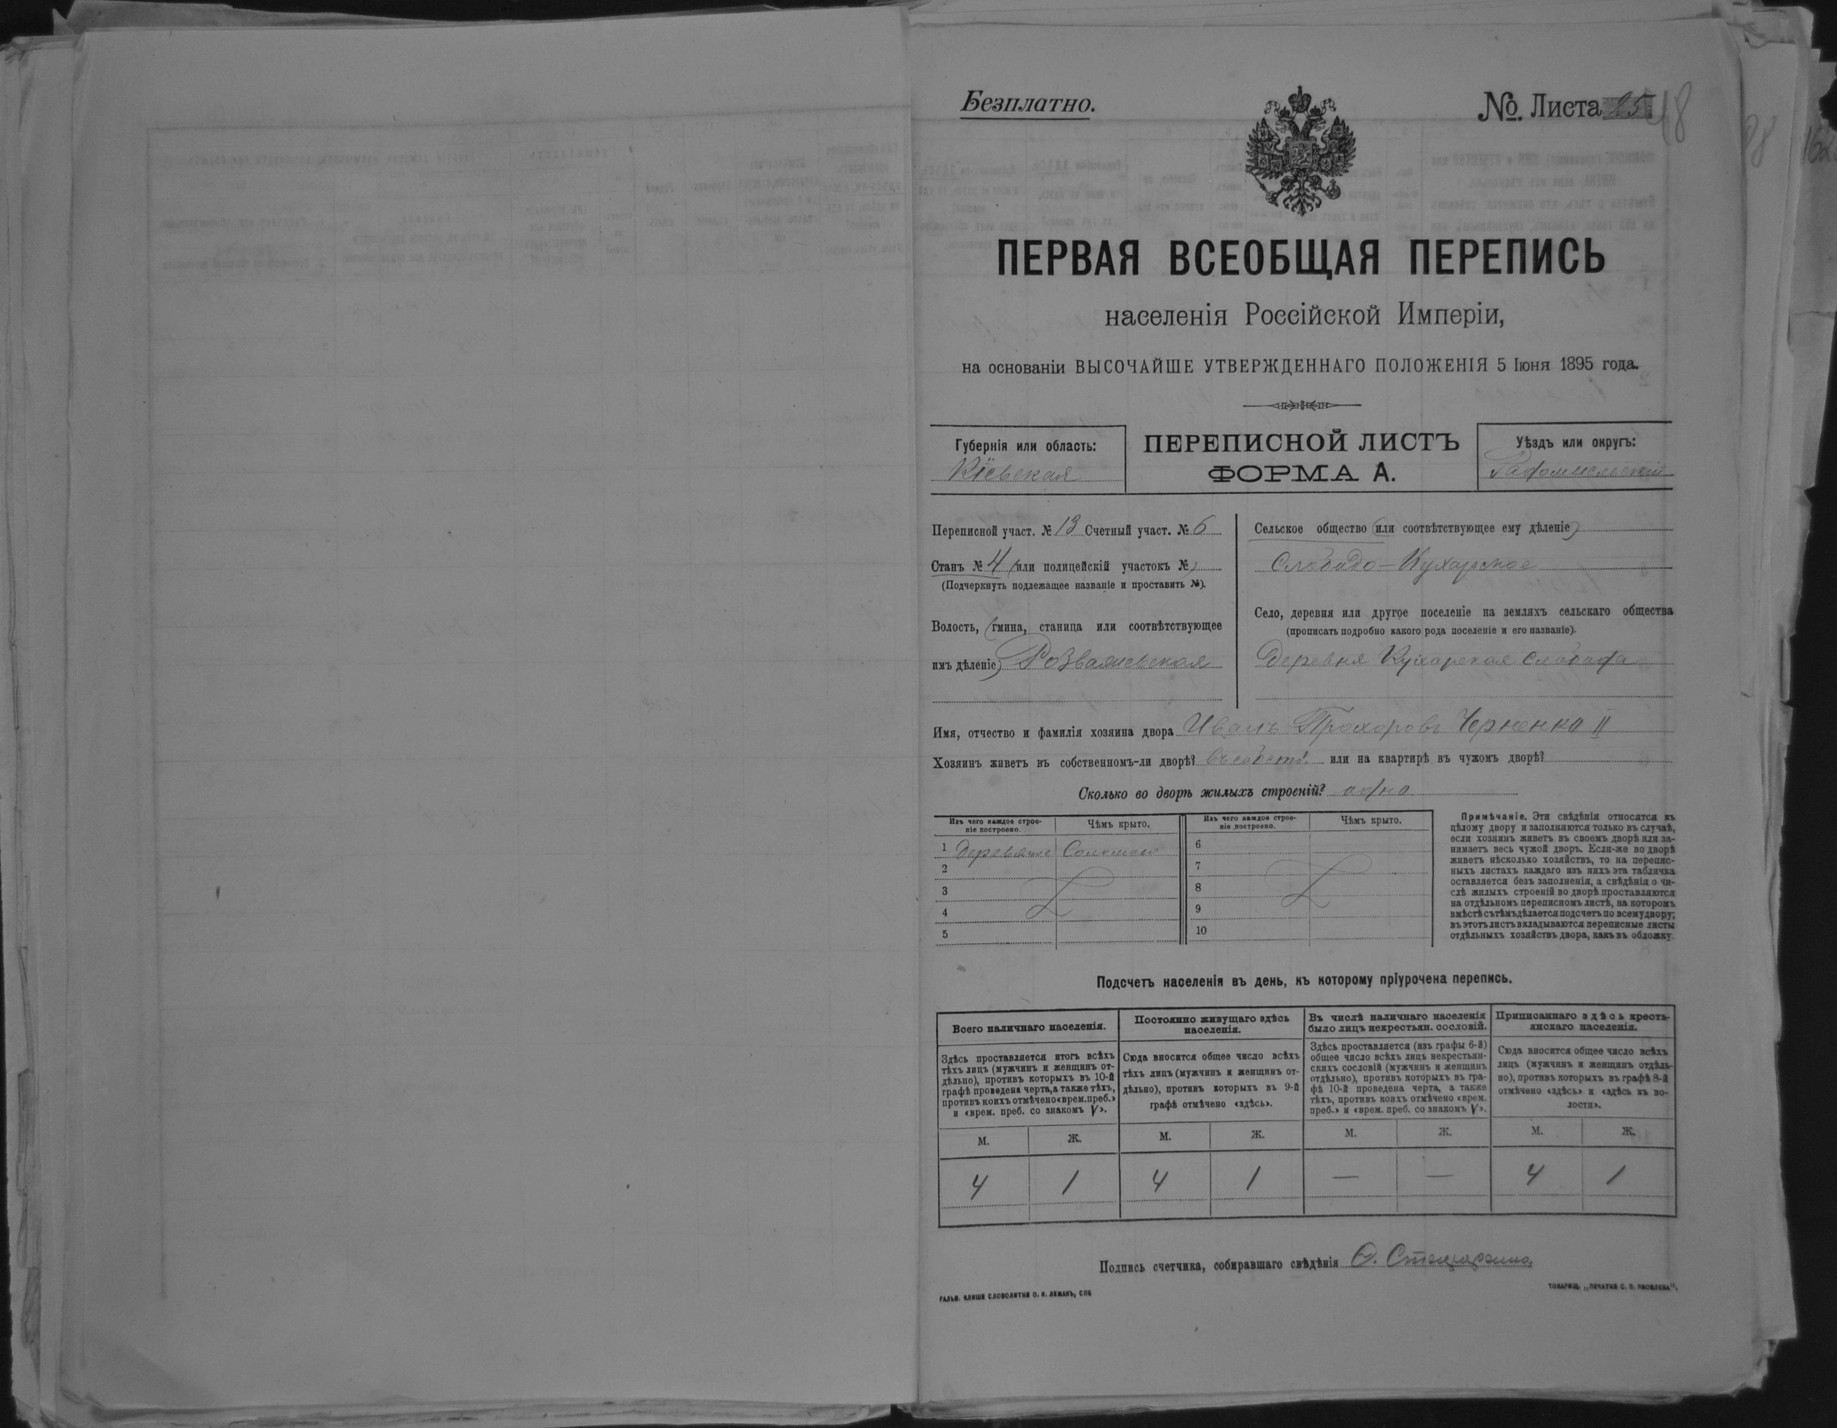 Безплатно.
№. Листа 25 48
ПЕРВАЯ ВСЕОБЩАЯ ПЕРЕПИСЬ
населенія Россійской Имперіи,
на основаніи ВЫСОЧАЙШЕ УТВЕРЖДЕННАГО ПОЛОЖЕНІЯ 5 Іюня 1895 года.
Губернія или область:
Кіевская
ПЕРЕПИСНОЙ ЛИСТЪ
ФОРМА А.
Уѣздъ или округъ:
Радомысльскій
Переписной участ. № 13 Счетный участ. № 6
Станъ № 4 (или полицейскій участокъ №)
(Подчеркнуть подлежащее названіе и проставить №).
Волость, (гмина, станица или соотвѣтствующее
имъ дѣленіе) Розважевская
Сельское общество (или соотвѣтствующее ему дѣленіе)
Слободо-Кухарское
Село, деревня или другое поселеніе на земляхъ сельскаго общества
(прописать подробно какого рода поселеніе и его названіе).
Деревня Кухарская Слобода
Имя, отчество и фамилія хозяина двора Иванъ Прохоровъ Черненко II
Хозяинъ живетъ въ собственномъ-ли дворѣ? въ собств. или на квартирѣ въ чужомъ дворѣ?
Сколько во дворѣ жилыхъ строеній? одно
Изъ чего каждое строе-
ніе построено.
Чѣмъ крыто.
Изъ чего каждое строе-
ніе построено.
Чѣмъ крыто.
1 Деревянное Соломою
2
3
4
5
6
7
8
9
10
Примѣчаніе. Эти свѣдѣнія относятся къ
цѣлому двору и заполняются только въ случаѣ,
если хозяинъ живетъ въ своемъ дворѣ или за-
нимаетъ весь чужой дворъ. Если-же во дворѣ
живетъ нѣсколько хозяйствъ, то на перепис-
ныхъ листахъ каждаго изъ нихъ эта табличка
оставляется безъ заполненія, а свѣдѣнія о чи-
слѣ жилыхъ строеній во дворѣ проставляются
на отдѣльномъ переписномъ листѣ, на которомъ
вмѣстѣ съ тѣмъ дѣлается подсчетъ по всему двору;
въ этотъ листъ вкладываются переписные листы
отдѣльныхъ хозяйствъ двора, какъ въ обложку.
Подсчетъ населенія въ день, къ которому пріурочена перепись.
Всего наличнаго населенія.
Здѣсь проставляется итогъ всѣхъ
тѣхъ лицъ (мужчинъ и женщинъ от-
дѣльно), противъ которыхъ въ 10-й
графѣ проведена черта, а также тѣхъ,
противъ коихъ отмѣчено «врем. преб.»
и «врем. преб. со знакомъ V».
Постоянно живущаго здѣсь
населенія.
Сюда вносится общее число всѣхъ
тѣхъ лицъ (мужчинъ и женщинъ от-
дѣльно), противъ которыхъ въ 9-й
графѣ отмѣчено «здѣсь».
Въ числѣ наличнаго населенія
было лицъ некрестьян. сословій.
Здѣсь проставляется (изъ графы 6-й)
общее число всѣхъ лицъ некрестьян-
скихъ сословій (мужчинъ и женщинъ
отдѣльно), противъ которыхъ въ гра-
фѣ 10-й проведена черта, а также
тѣхъ, противъ коихъ отмѣчено «врем.
преб.» и «врем. преб. со знакомъ V».
Приписаннаго здѣсь кресть-
янскаго населенія.
Сюда вносится общее число всѣхъ
лицъ (мужчинъ и женщинъ отдѣль-
но), противъ которыхъ въ графѣ 8-й
отмѣчено «здѣсь» и «здѣсь въ во-
лости».
М. Ж. М. Ж. М. Ж. М. Ж.
4 1 4 1 — — 4 1
Подпись счетчика, собиравшаго свѣдѣнія
ГАЛЬВ. КЛИШЕ СЛОВОЛИТНИ О. И. ЛЕМАНЪ, СПБ
ТОВАРИЩ. „ПЕЧАТНЯ С. П. ЯКОВЛЕВА".